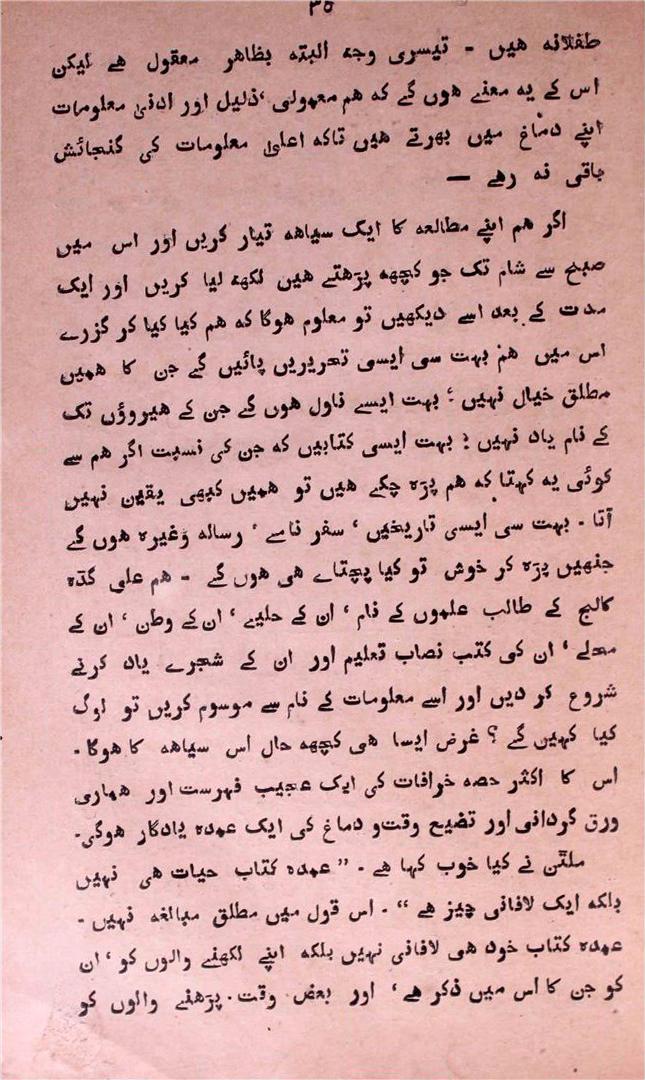 ۳۵
طفلانه هیں - تیسری وجه البته بظاهر معقول هے لیکن
اس کے یه معنے هوں گے که هم معمولی ،ذلیل اور ادنیٰ معلومات
اپنے دماغ میں بھرتے هیں تاکه اعلیٰ معلومات کی گنجائش
باقی نه رهے —
اگر هم اپنے مطالعه کا ایک سیاهه تیار کریں اور اس میں
صبح سے شام تک جو کچهه پڑهتے هیں لکهه لیا کریں اور ایک
مدت کے بعد اسے دیکھیں تو معلوم هوگا که هم کیا کیا کر گزرے
اس میں هم بہت سی ایسی تحریریں پائیں گے جن کا همیں
مطلق خیال نہیں ؛ بہت ایسے ناول هوں گے جن کے هیروؤں تک
کے نام یاد نہیں ؛ بہت ایسی کتابیں که جن کی نسبت اگر هم سے
کوئی یه کہتا که هم پڑه چکے هیں تو همیں کبھی یقین نہیں
آتا - بہت سی ایسی تاریخیں ، سفر نامے ، رساله وغیره هوں گے
جنھیں پڑه کر خوش تو کیا پچتاے هی هوں گے - هم علی گڈه
کالج کے طالب علموں کے نام ، ان کے حلیے ، ان کے وطن ، ان کے
محلے ، ان کی کتب نصاب تعلیم اور ان کے شجرے یاد کرنے
شروع کر دیں اور اسے معلومات کے نام سے موسوم کریں تو لوگ
کیا کہیں گے ؟ غرض ایسا هی کچهه حال اس سیاهه کا هوگا -
اس کا اکثر حصه خرافات کی ایک عجیب فہرست اور هماری
ورق گردانی اور تضیع وقت و دماغ کی ایک عمده یادگار هوگی-
ملٹن نے کیا خوب کہا هے - ” عمده کتاب حیات هی نہیں
بلکه ایک لافانی چیز هے “ - اس قول میں مطلق مبالغه نہیں -
عمده کتاب خود هی لافانی نہیں بلکه اپنے لکھنے والوں کو ، ان
کو جن کا اس میں ذکر هے ، اور بعض وقت پڑهنے والوں کو